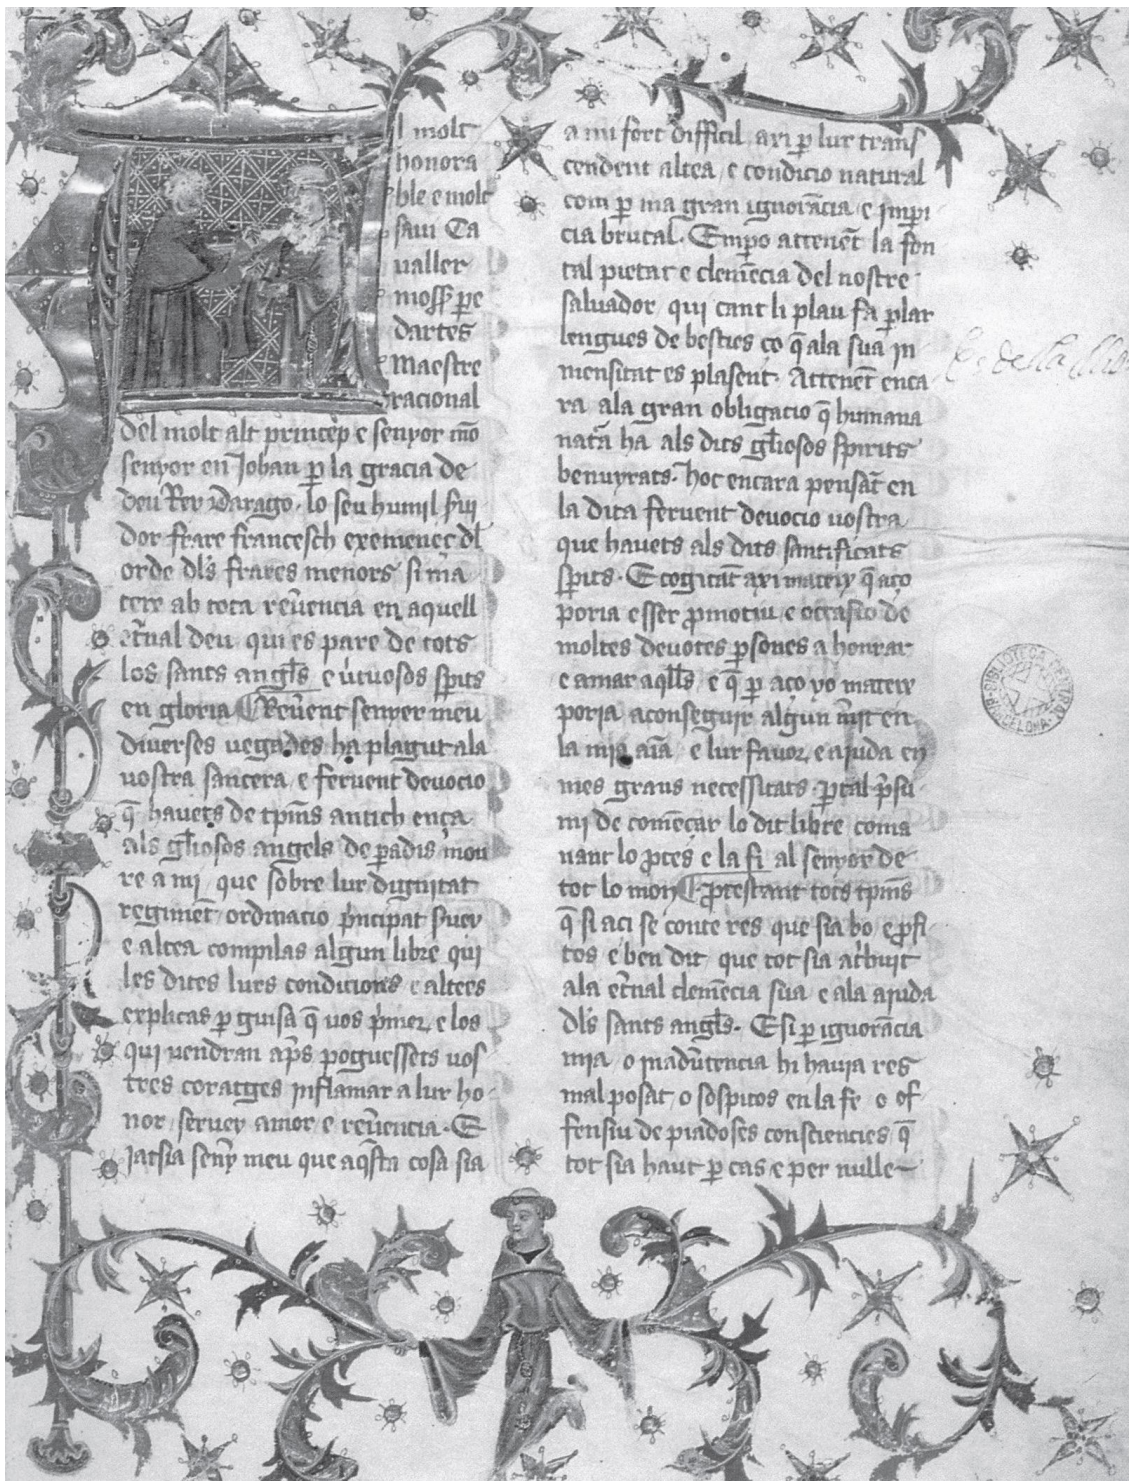 l molt
honora
ble e molt
savi Ca
valler
moss̄ pe
dartes
Maestre
racional
del molt alt princep e senyor mō
senyor en Johan ꝑ la gracia de
deu Rey Darago. lo seu humil s̄ui
dor frare francesch exemenec dl̄
orde dl̄s frares menors si ma
teix ab tota reūencia en aquell
et̄nal deu qui es pare de tots
los sants angl̄s e ūtuosos sp̄its
en gloria Reūent senyer meu
diverses vegades ha plagut ala
vostra sancera e fervent devocio
q̄ havets de tp̄ms antich ença
als gl̄iosos angels de ꝑadis mou
re a mi que sobre lur dignitat
regimēt ordinacio p̄ncipat s̄uey
e altea compilas algun libre qui
les dites lurs condicions e altees
explicas ꝑ guisa q̄ vos p̄mer e los
qui vendran ap̄s poguessets vos
tres coratges inflamar a lur ho
nor servey amor e reūencia. E
jatsia seny̅ meu que aq̄sta cosa sia
a mi fort difficil axi ꝑ lur trans
cendent altea e condicio natural
com ꝑ ma gran ignorācia e imꝑi
cia brutal. Emꝑo attenēt la fon
tal pietat e clemēcia del nostre
salvador qui cant li plau fa ꝑlar
lengues de besties ço q̄ ala sua in
mensitat es plasent. Attenēt enca
ra ala gran obligacio q̄ humana
natā ha als dits gl̄iosos spirits
benuyrats. hoc encara pensāt en
la dita fervent devocio vostra
que havets als dits santificats
sp̄its. E cogitāt axi mateix q̄ aço
poria esser ꝓmotiu e occasio de
moltes devotes ꝑsones a honrar
e amar aq̄lls e q̄ ꝑ aço yo mateix
poria aconseguir algun m̄it en
la mia aīa e lur favor e ajuda en
mes grans necessitats. ꝑ tal p̄su
mi de comēçar lo dit libre coma
nant lo ꝓces e la fi al senyor de
tot lo mon. ꝓtestant tots tp̄ms
q̄ si aci se conte res que sia bo e ꝓfi
tos e ben dit que tot sia at̄buit
ala et̄nal clemēcia sua e ala ajuda
dl̄s sants angl̄s. E si ꝑ ignorācia
mia o inadūtencia hi havia res
mal posat o sospitos en la fe o of
fensiu de piadoses consciencies q̄
tot sia haut ꝑ cas e per nulle
BIBLIOTECA CENTRAL
BARCELONA